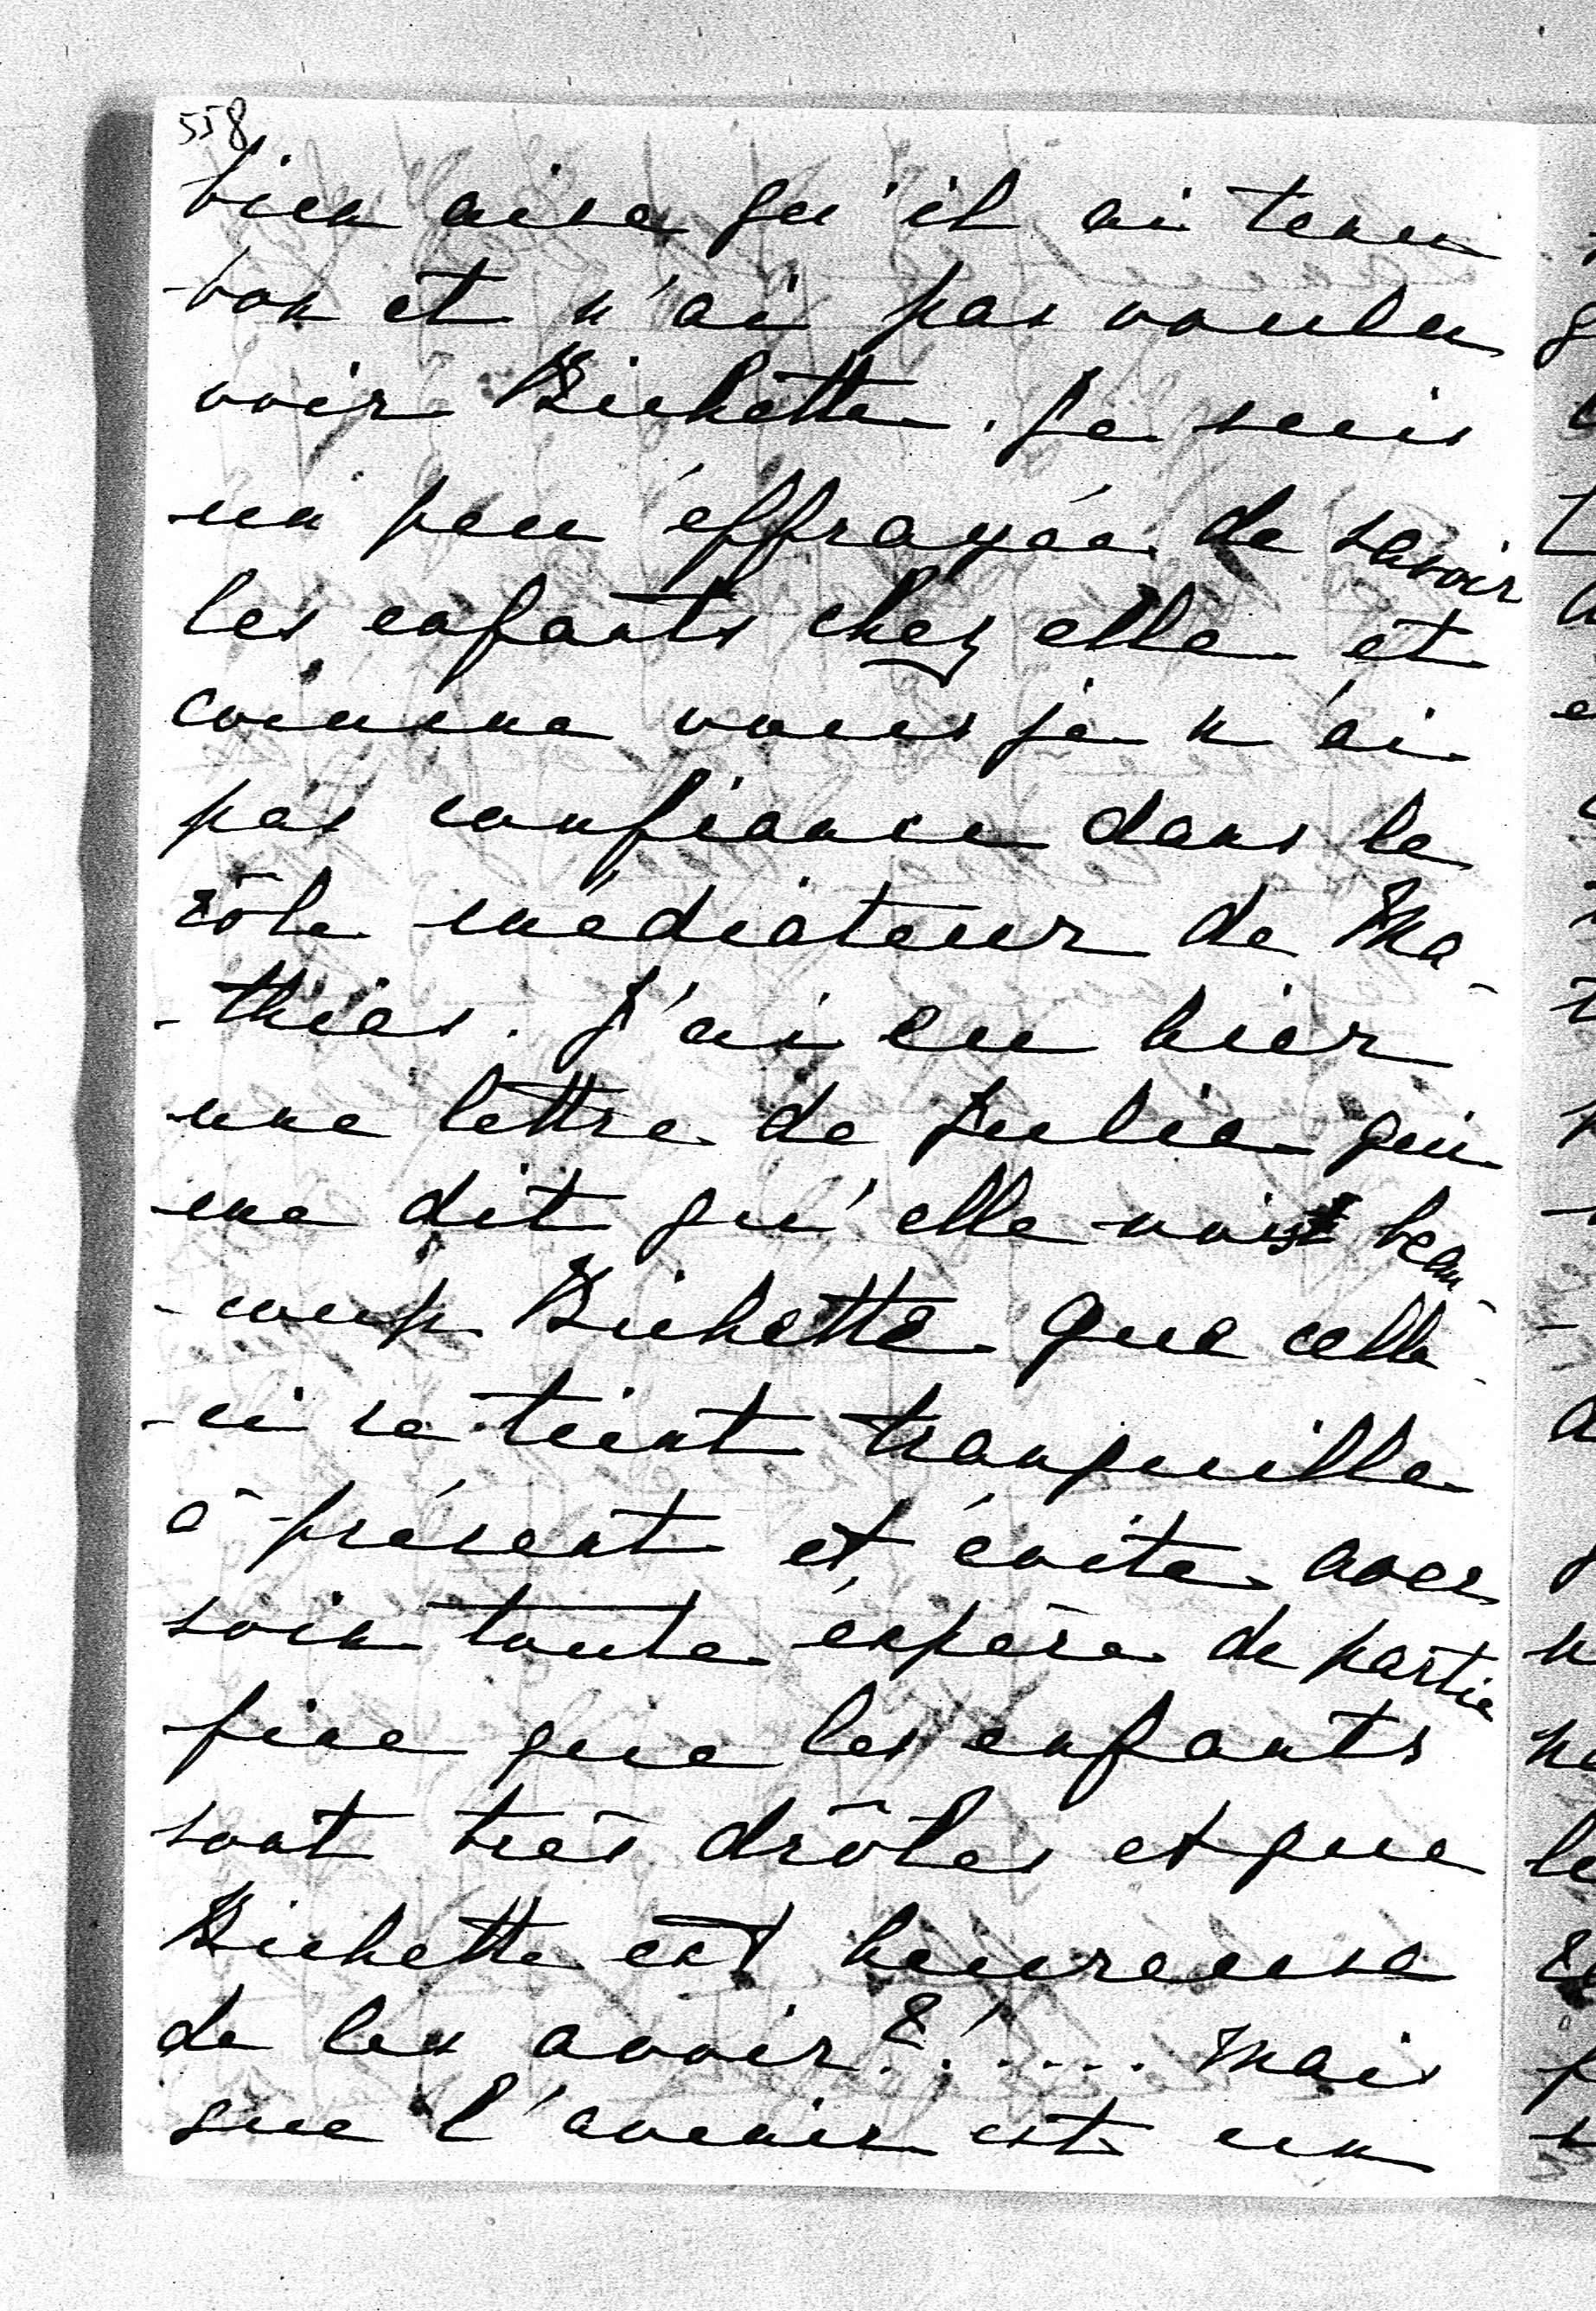 558
bien aise qu'il ai tenu
bon et n'ai pas voulu
voir Bichette. Je suis
un peu éffrayée de savoir
les enfants chez elle et
comme vous je n'ai
pas confiance dans le
rôle médiateur de Ma-
-thias. J'ai eu hier
une lettre de Julia qui
me dit qu'elle voit beau-
-coup Bichette que celle-
-ci se tient tranquille
à présent et évite avec
soin toute éspèce de partie
fine que les enfants
sont très drôles et que
Bichette est heureuse
de les avoir &...... mais
que l'avenir est un